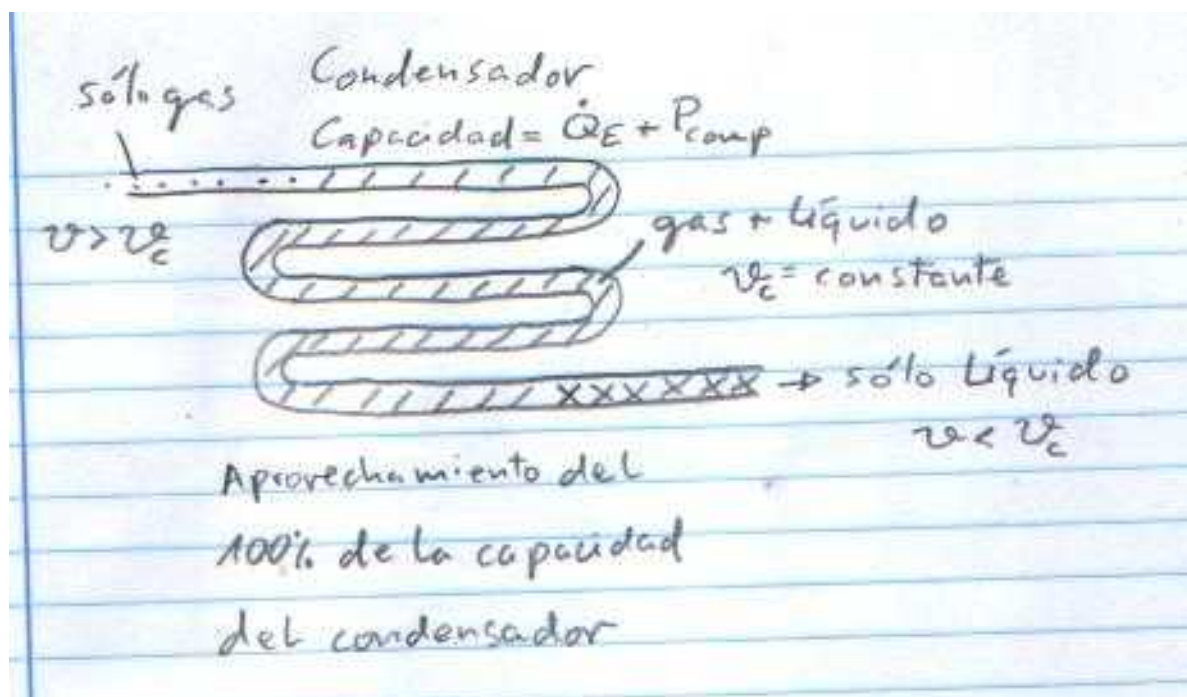 Condensador
sólo gas
Capacidad = Q̇E + Pcomp
ϑ > ϑc
gas + Líquido
ϑc = constante
xxxxxxx → sólo Líquido
ϑ < ϑc
Aprovechamiento del
100% de la capacidad
del condensador